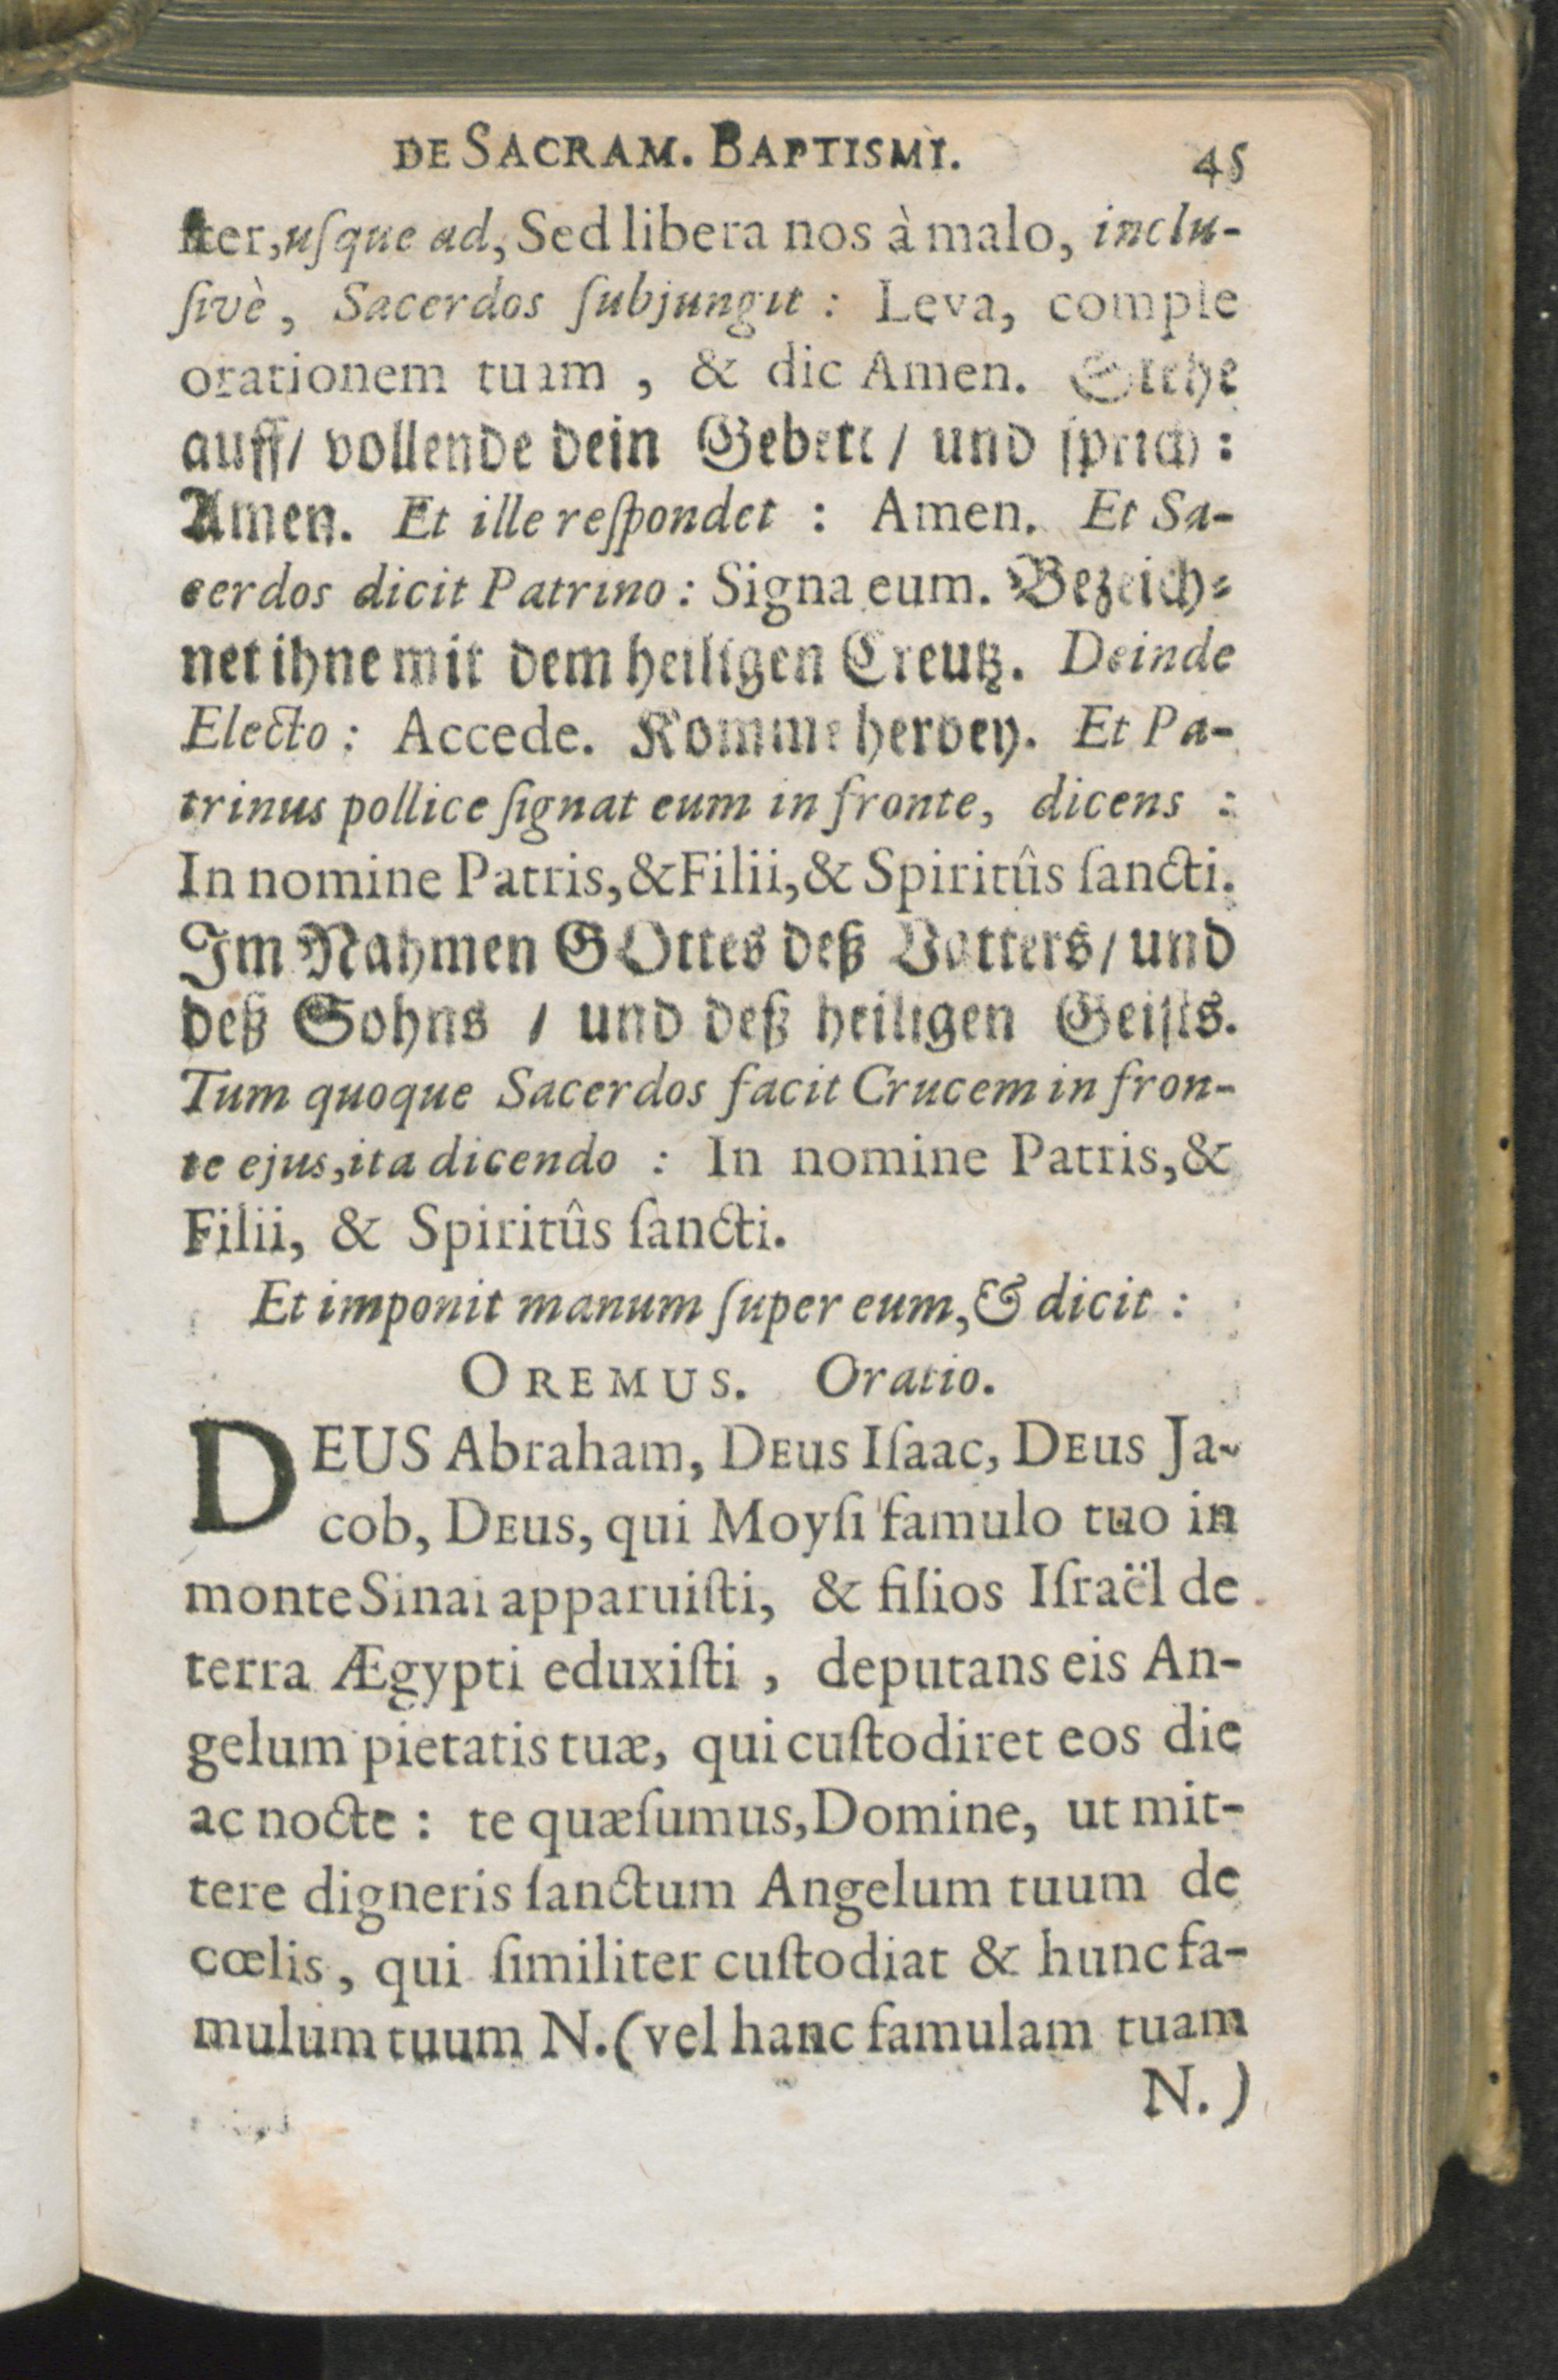 DE SACRAM. BAPTISMI. 45
ſter, uſque ad, Sed libera nos à malo, inclu-
ſivè, Sacerdos ſubjungit : Leva, comple
orationem tuam , & dic Amen. Stehe
auff/ vollende dein Gebett / und ſprich :
Amen. Et ille reſpondet : Amen. Et Sa-
cerdos dicit Patrino : Signa eum. Bezeich-
net ihne mit dem heiligen Creutz. Deinde
Electo : Accede. Komme herbey. Et Pa-
trinus pollice ſignat eum in fronte, dicens :
In nomine Patris, & Filii, & Spiritûs ſancti.
Im Nahmen GOttes deß Vatters / und
deß Sohns / und deß heiligen Geiſts.
Tum quoque Sacerdos facit Crucem in fron-
te ejus, ita dicendo : In nomine Patris, &
Filii, & Spiritûs ſancti.
Et imponit manum ſuper eum, & dicit :
OREMUS. Oratio.
DEUS Abraham, DEus Iſaac, DEus Ja-
cob, DEus, qui Moyſi famulo tuo in
monte Sinai apparuiſti, & filios Iſraël de
terra Ægypti eduxiſti , deputans eis An-
gelum pietatis tuæ, qui cuſtodiret eos die
ac nocte : te quæſumus, Domine, ut mit-
tere digneris ſanctum Angelum tuum de
cœlis, qui ſimiliter cuſtodiat & hunc fa-
mulum tuum N. (vel hanc famulam tuam
N.)